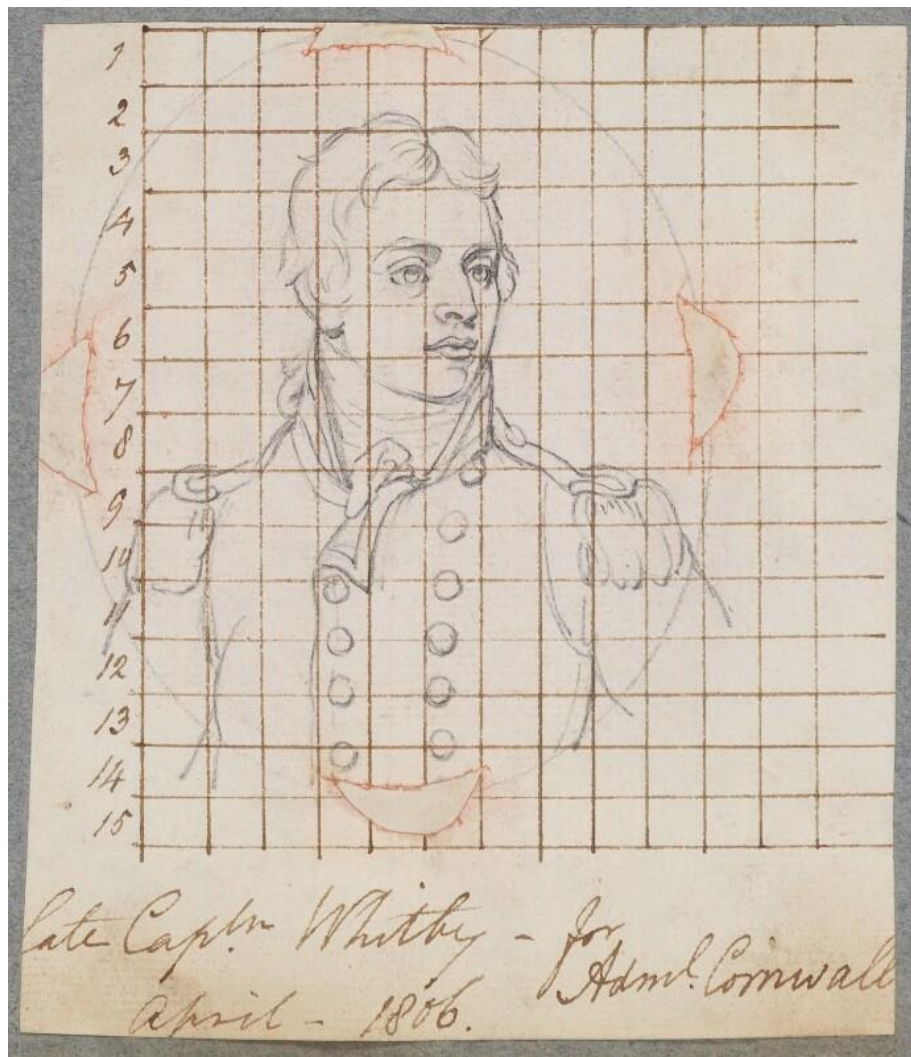 1
2
3
4
5
6
7
8
9
10
11
12
13
14
15
late Captn Whitby - for
Adml. Cornwall
April - 1806.